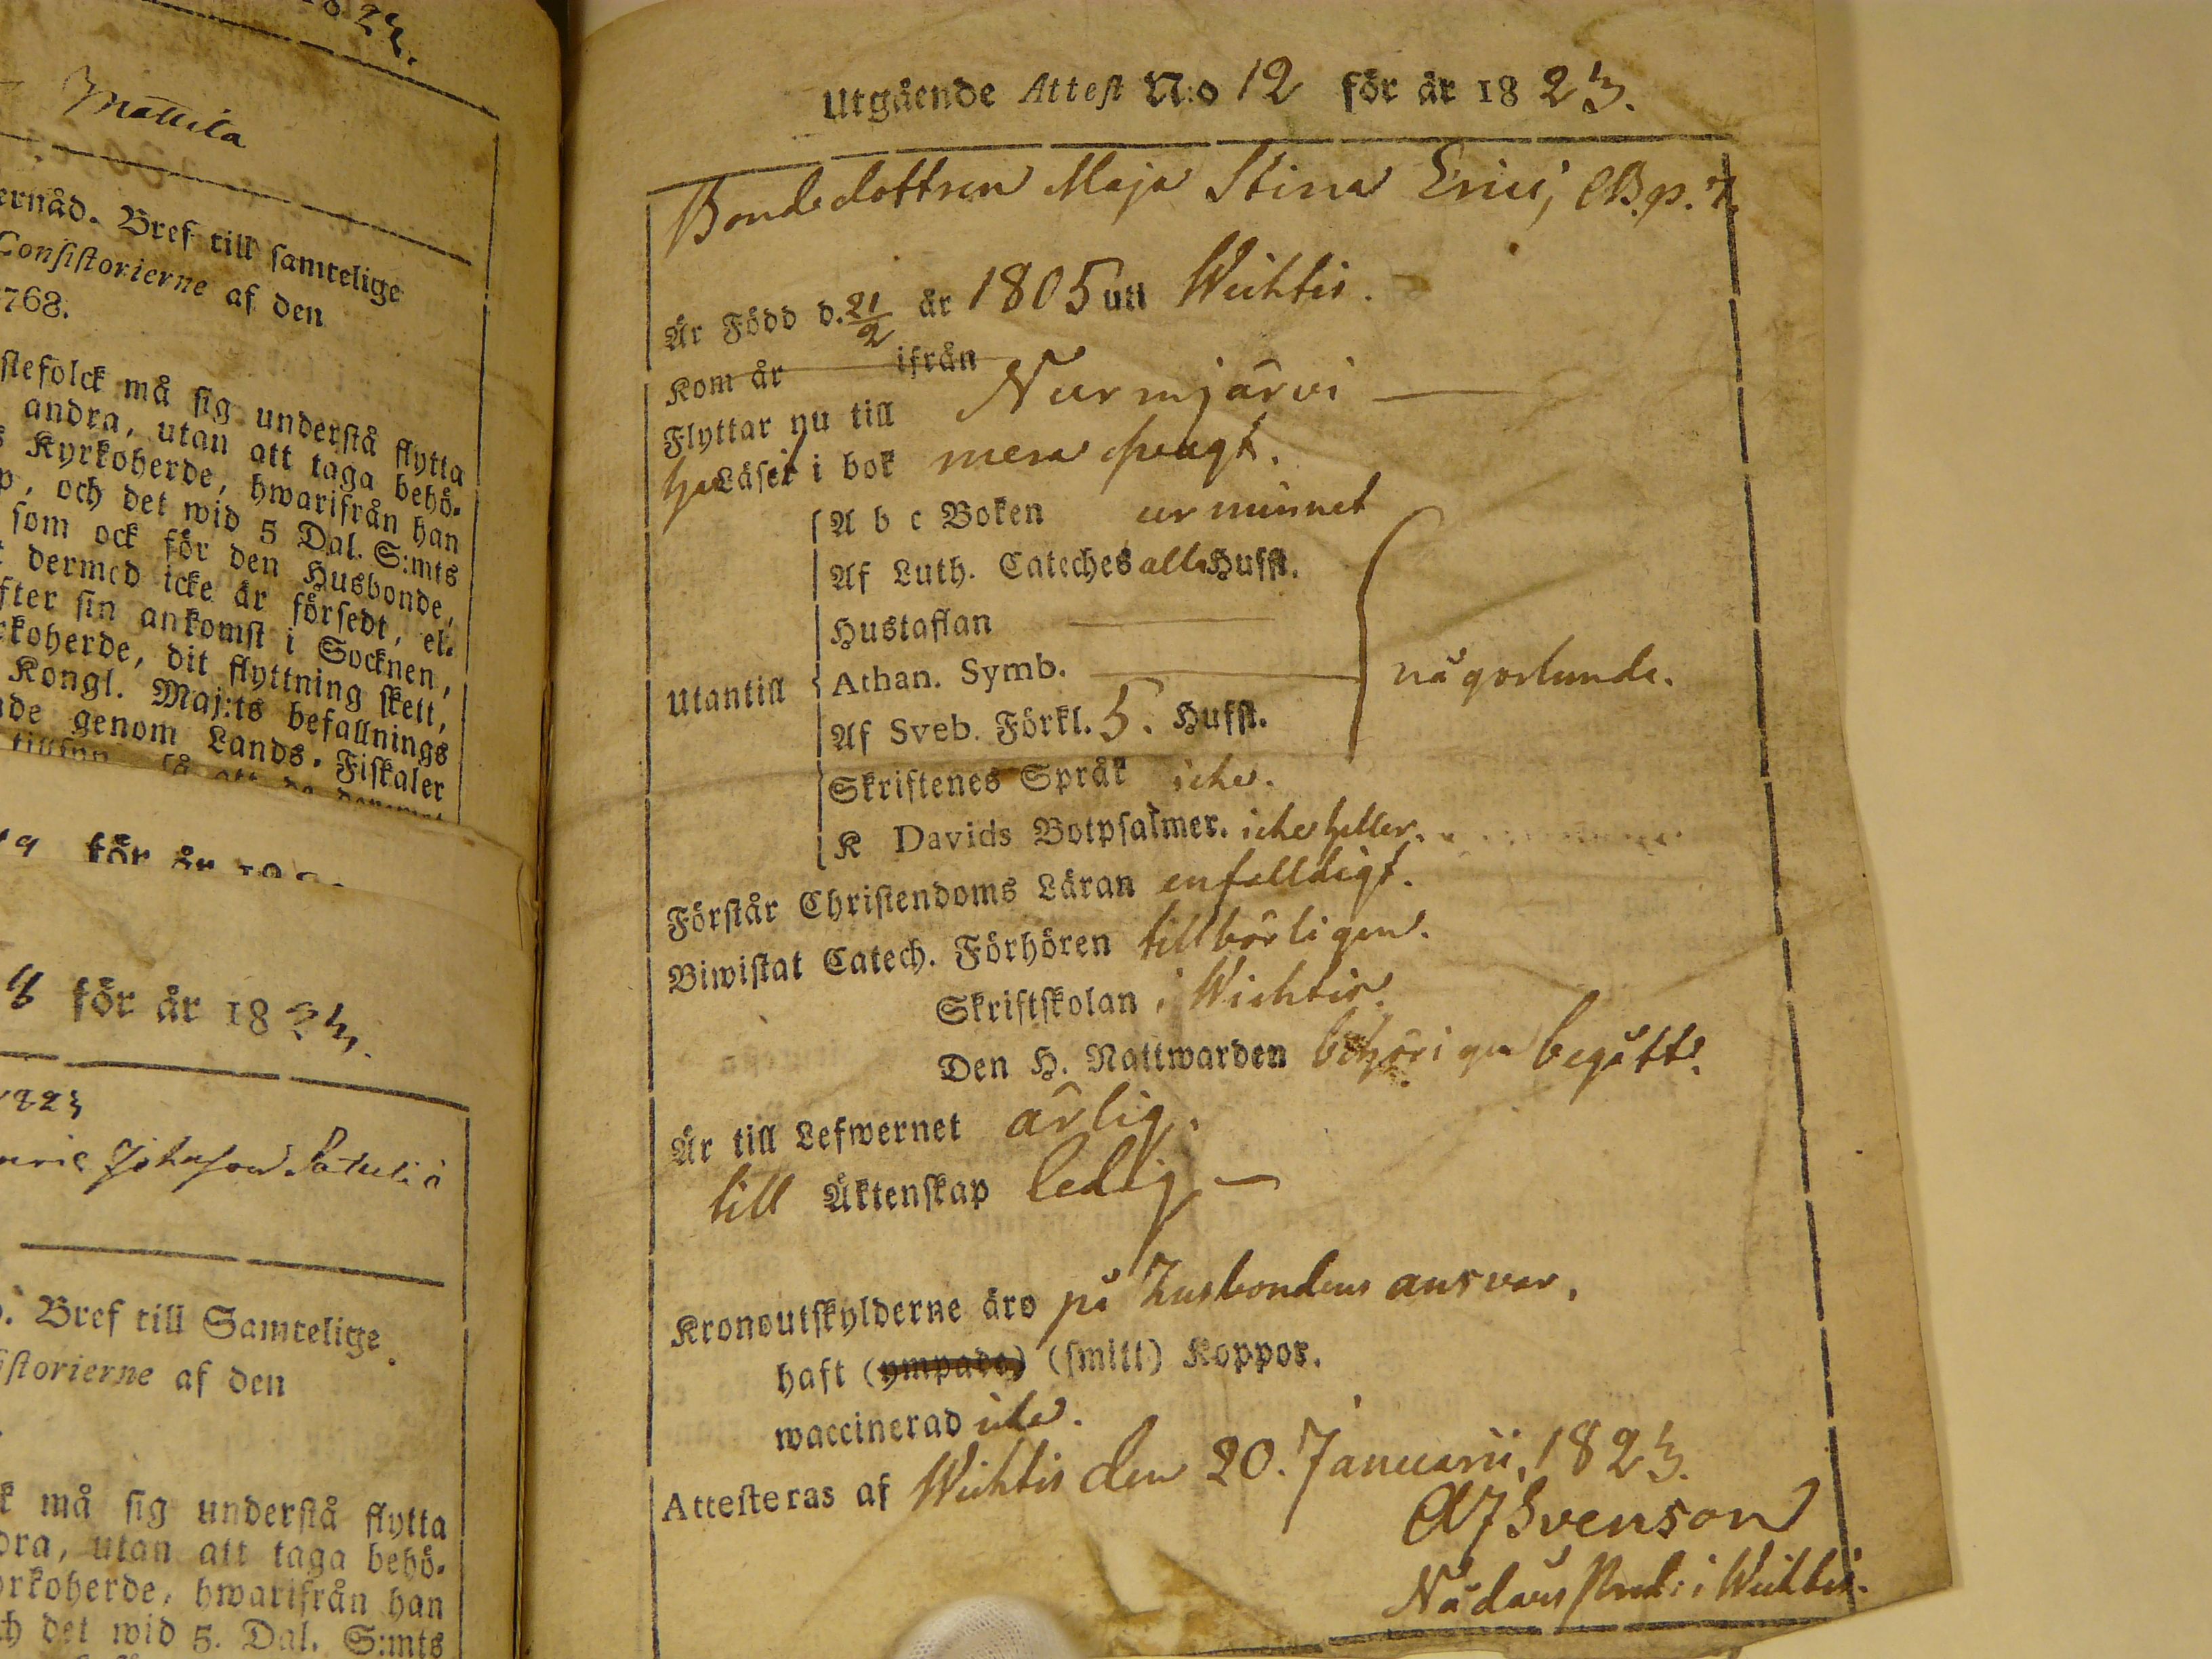 23.
Mattila
ernåd. Bref till samtelige
Consistorierne af den
768.
stefolck må sig understå flytta
andra, utan att taga behö-
Kyrkoherde, hwarifrån han
p, och det wid 5 Dal. S:mts
som ock för den Husbonde,
dermed icke är försedt, el-
fter sin ankomst i Socknen,
rkoherde, dit flyttning skett,
Kongl. Maj:ts befallnings
de genom Lands-Fiskaler
för år 18
för år 18 23.
1823
Johansson
. Bref till Samtelige
istorierne af den
k må sig understå flytta
dra, utan att taga behö-
rkoherde, hwarifrån han
ch det wid 5. Dal. S:mts
Utgående Attest N:o 12 för år 18 23.
Bondedottren Maja Stina Erici, CB. p. 7.
Är Född d. 21/2 år 1805 uti Wichtis.
Kom år ifrån
Flyttar nu till Nurmjärvi
har Läsit i bok mera svagt.
A b c Boken ur minnet
Af Luth. Cateches alla Hufst.
Hustaflan
Utantill Athan. Symb. någorlunda.
Af Sveb. Förkl. 5. Hufst.
Skriftenes Språk icke.
K Davids Botpsalmer. icke heller.
Förstår Christendoms Läran enfalldigt.
Biwistat Catech. Förhören tillbörligen.
Skriftskolan i Wichtis.
Den H. Nattwarden behörigen begått.
Är till Lefwernet ärlig.
till Äktenskap ledig
Kronoutskylderne äro på Husbondens ansvar.
haft (ympade) (smitt) Koppor.
waccinerad icke.
Attesteras af Wichtis den 20. Januarii, 1823.
Svenson
Nådårs Pred: i Wichtis.